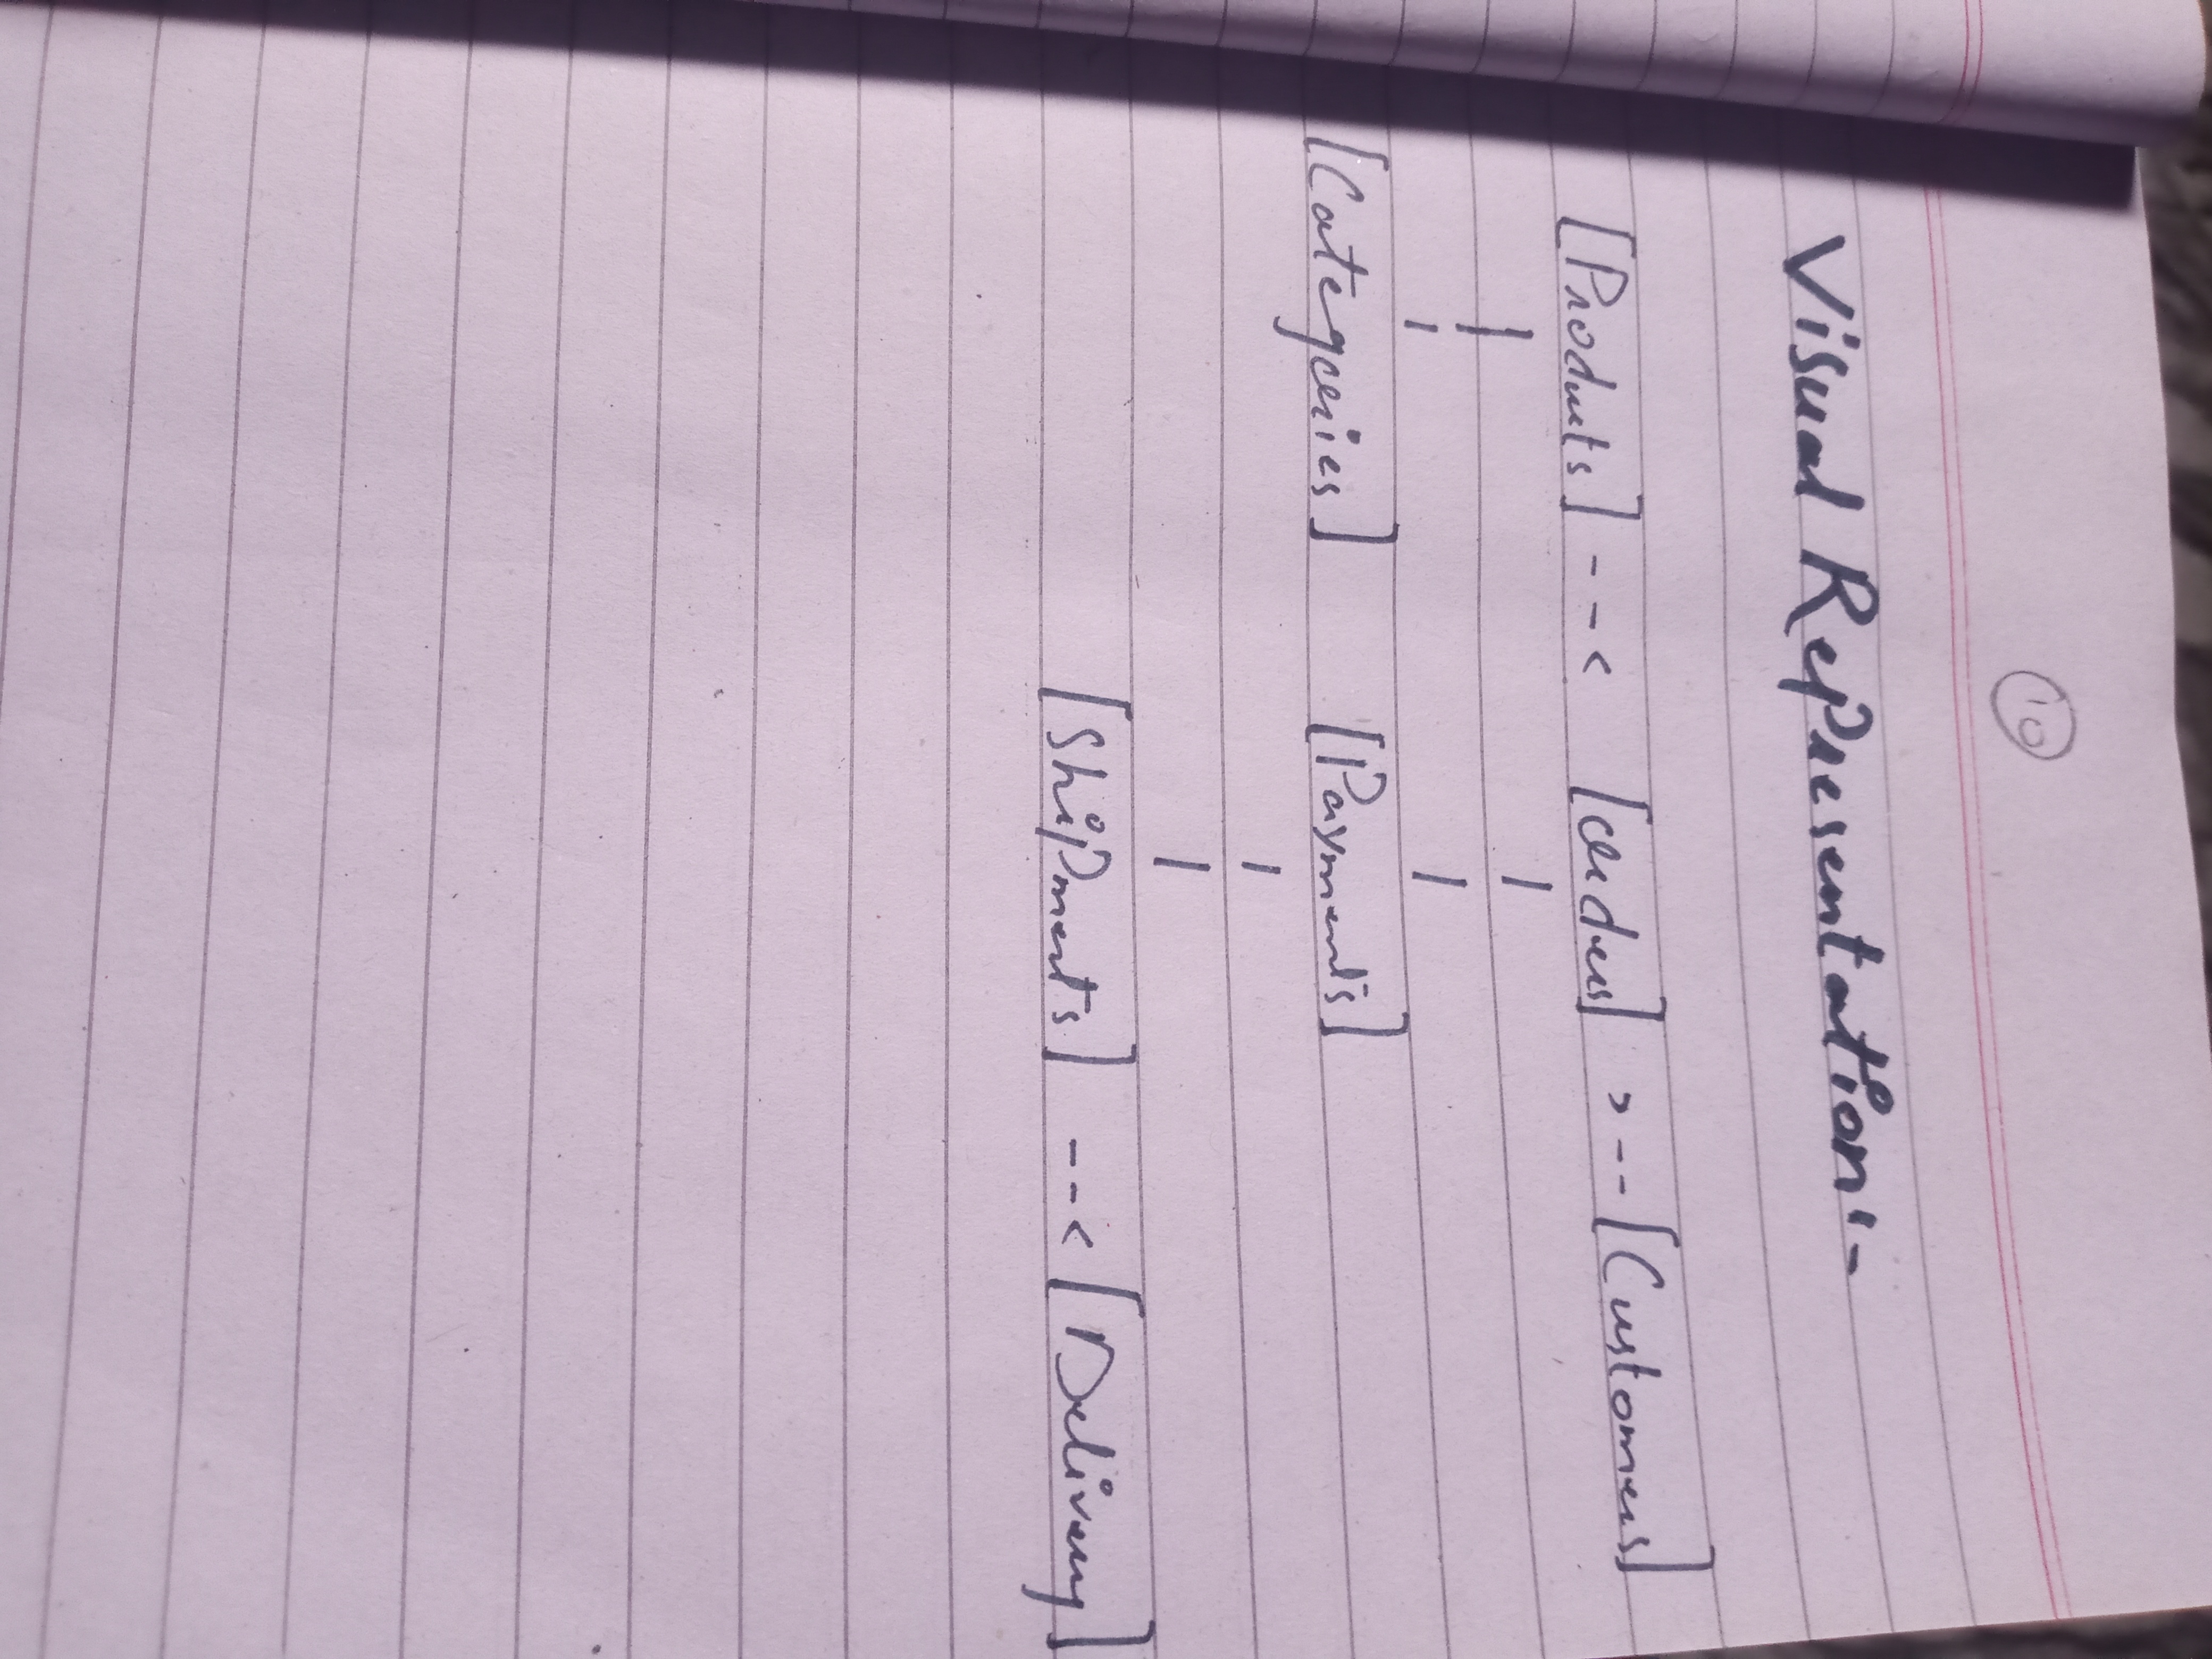 10
Visual Representation:-
[Products] --< [Orders] >--[Customers]
| |
| |
[Categories] [Payments]
|
|
[Shipments] --< [Delivery]